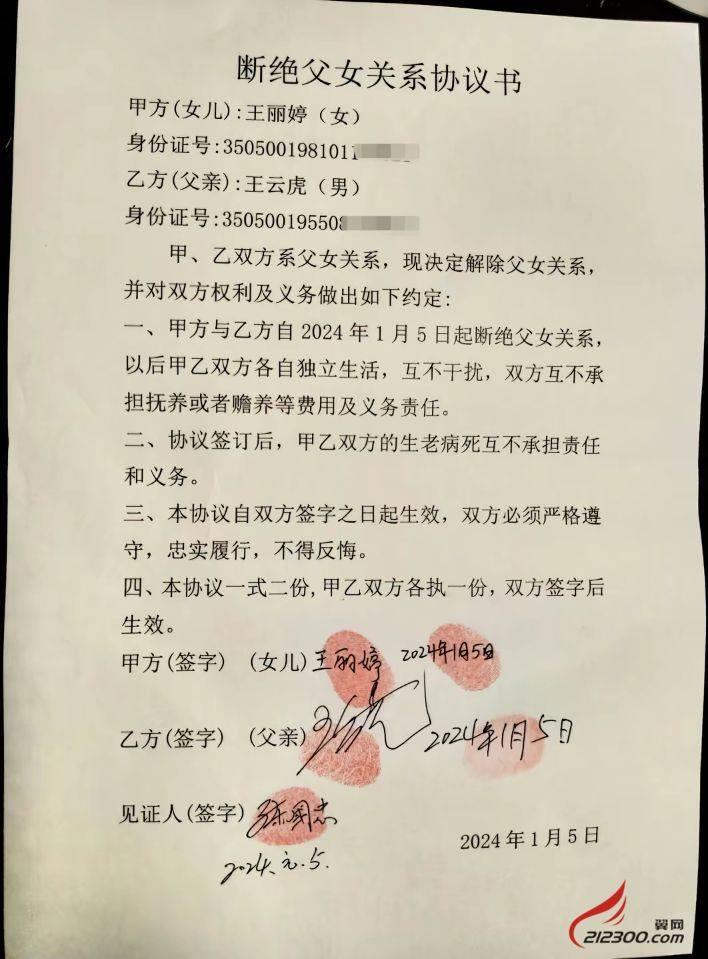 断绝父女关系协议书
甲方(女儿):王丽婷（女）
身份证号:3505001981011
乙方(父亲):王云虎（男）
身份证号:35050019550
甲、乙双方系父女关系，现决定解除父女关系，
并对双方权利及义务做出如下约定:
一、甲方与乙方自2024年1月5日起断绝父女关系，
以后甲乙双方各自独立生活，互不干扰，双方互不承
担抚养或者赡养等费用及义务责任。
二、协议签订后，甲乙双方的生老病死互不承担责任
和义务。
三、本协议自双方签字之日起生效，双方必须严格遵
守，忠实履行，不得反悔。
四、本协议一式二份,甲乙双方各执一份，双方签字后
生效。
甲方(签字) (女儿)王丽婷 2024年1月5日
乙方(签字) (父亲) 2024年1月5日
见证人(签字)
2024.元.5.
2024年1月5日
翼网
212300.com